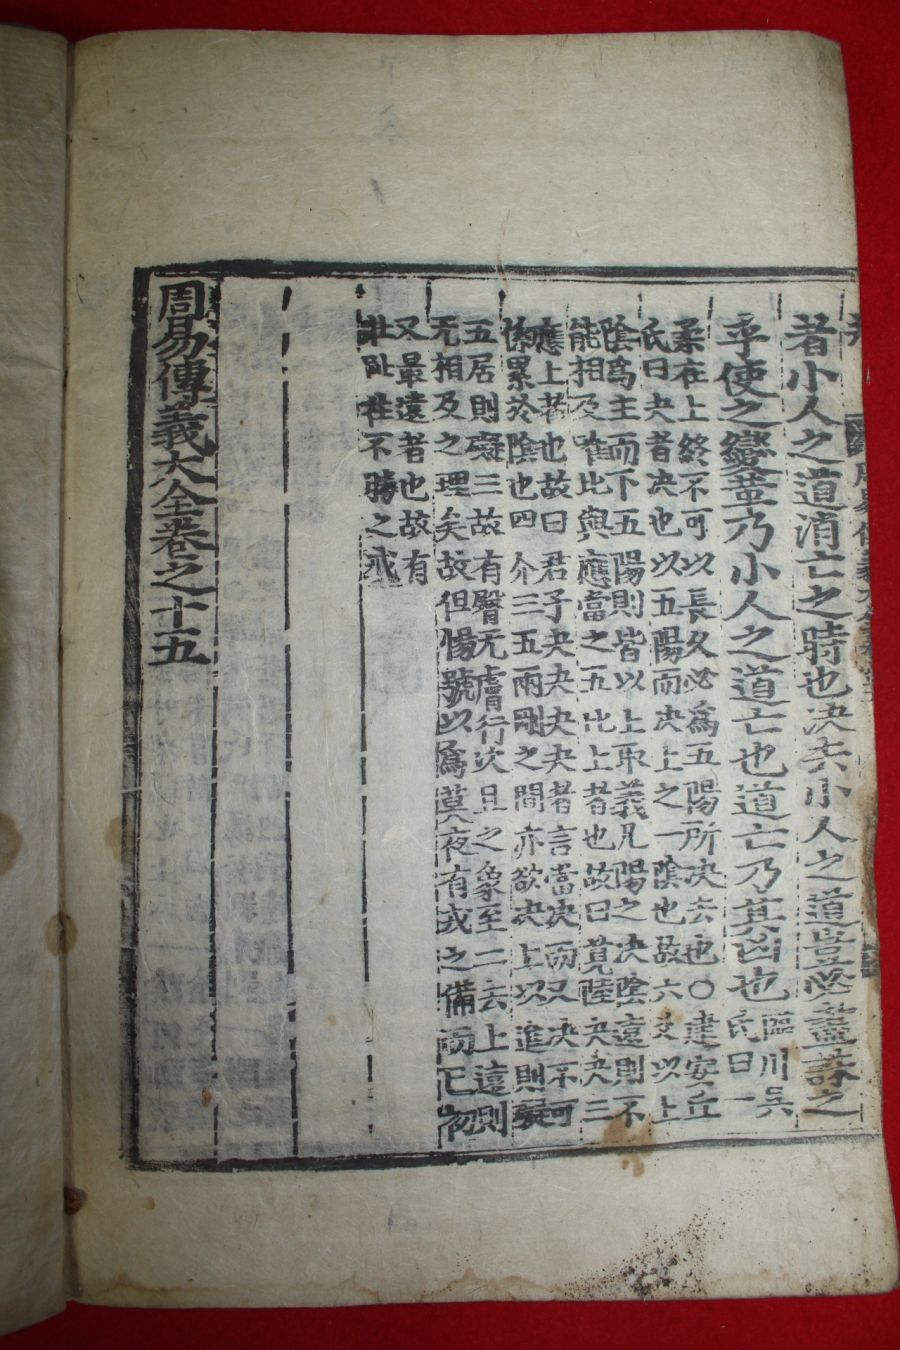 者小人之道消亡之時也决去小人之道豈必盡誅之
乎使之變革乃小人之道亡也道亡乃其凶也
臨川吳
氏曰一
柔在上終不可以長久必爲五陽所决去也○建安丘
氏曰夬者决也以五陽而决上之一陰也故六爻以上
陰爲主而下五陽則皆以上取義凡陽之决陰遠則不
能相及唯比與應當之五比上者也故曰莧陸夬夬三
應上者也故曰君子夬夬夬夬者言當决而又决不可
係累於陰也四介三五兩剛之間亦欲决上以進則礙
五居則礙三故有臀无膚行次且之象至二去上遠則
无相及之理矣故但惕號以爲莫夜有戎之備而已初
又最遠者也故有
壯趾往不勝之戒
周易傳義大全卷之十五